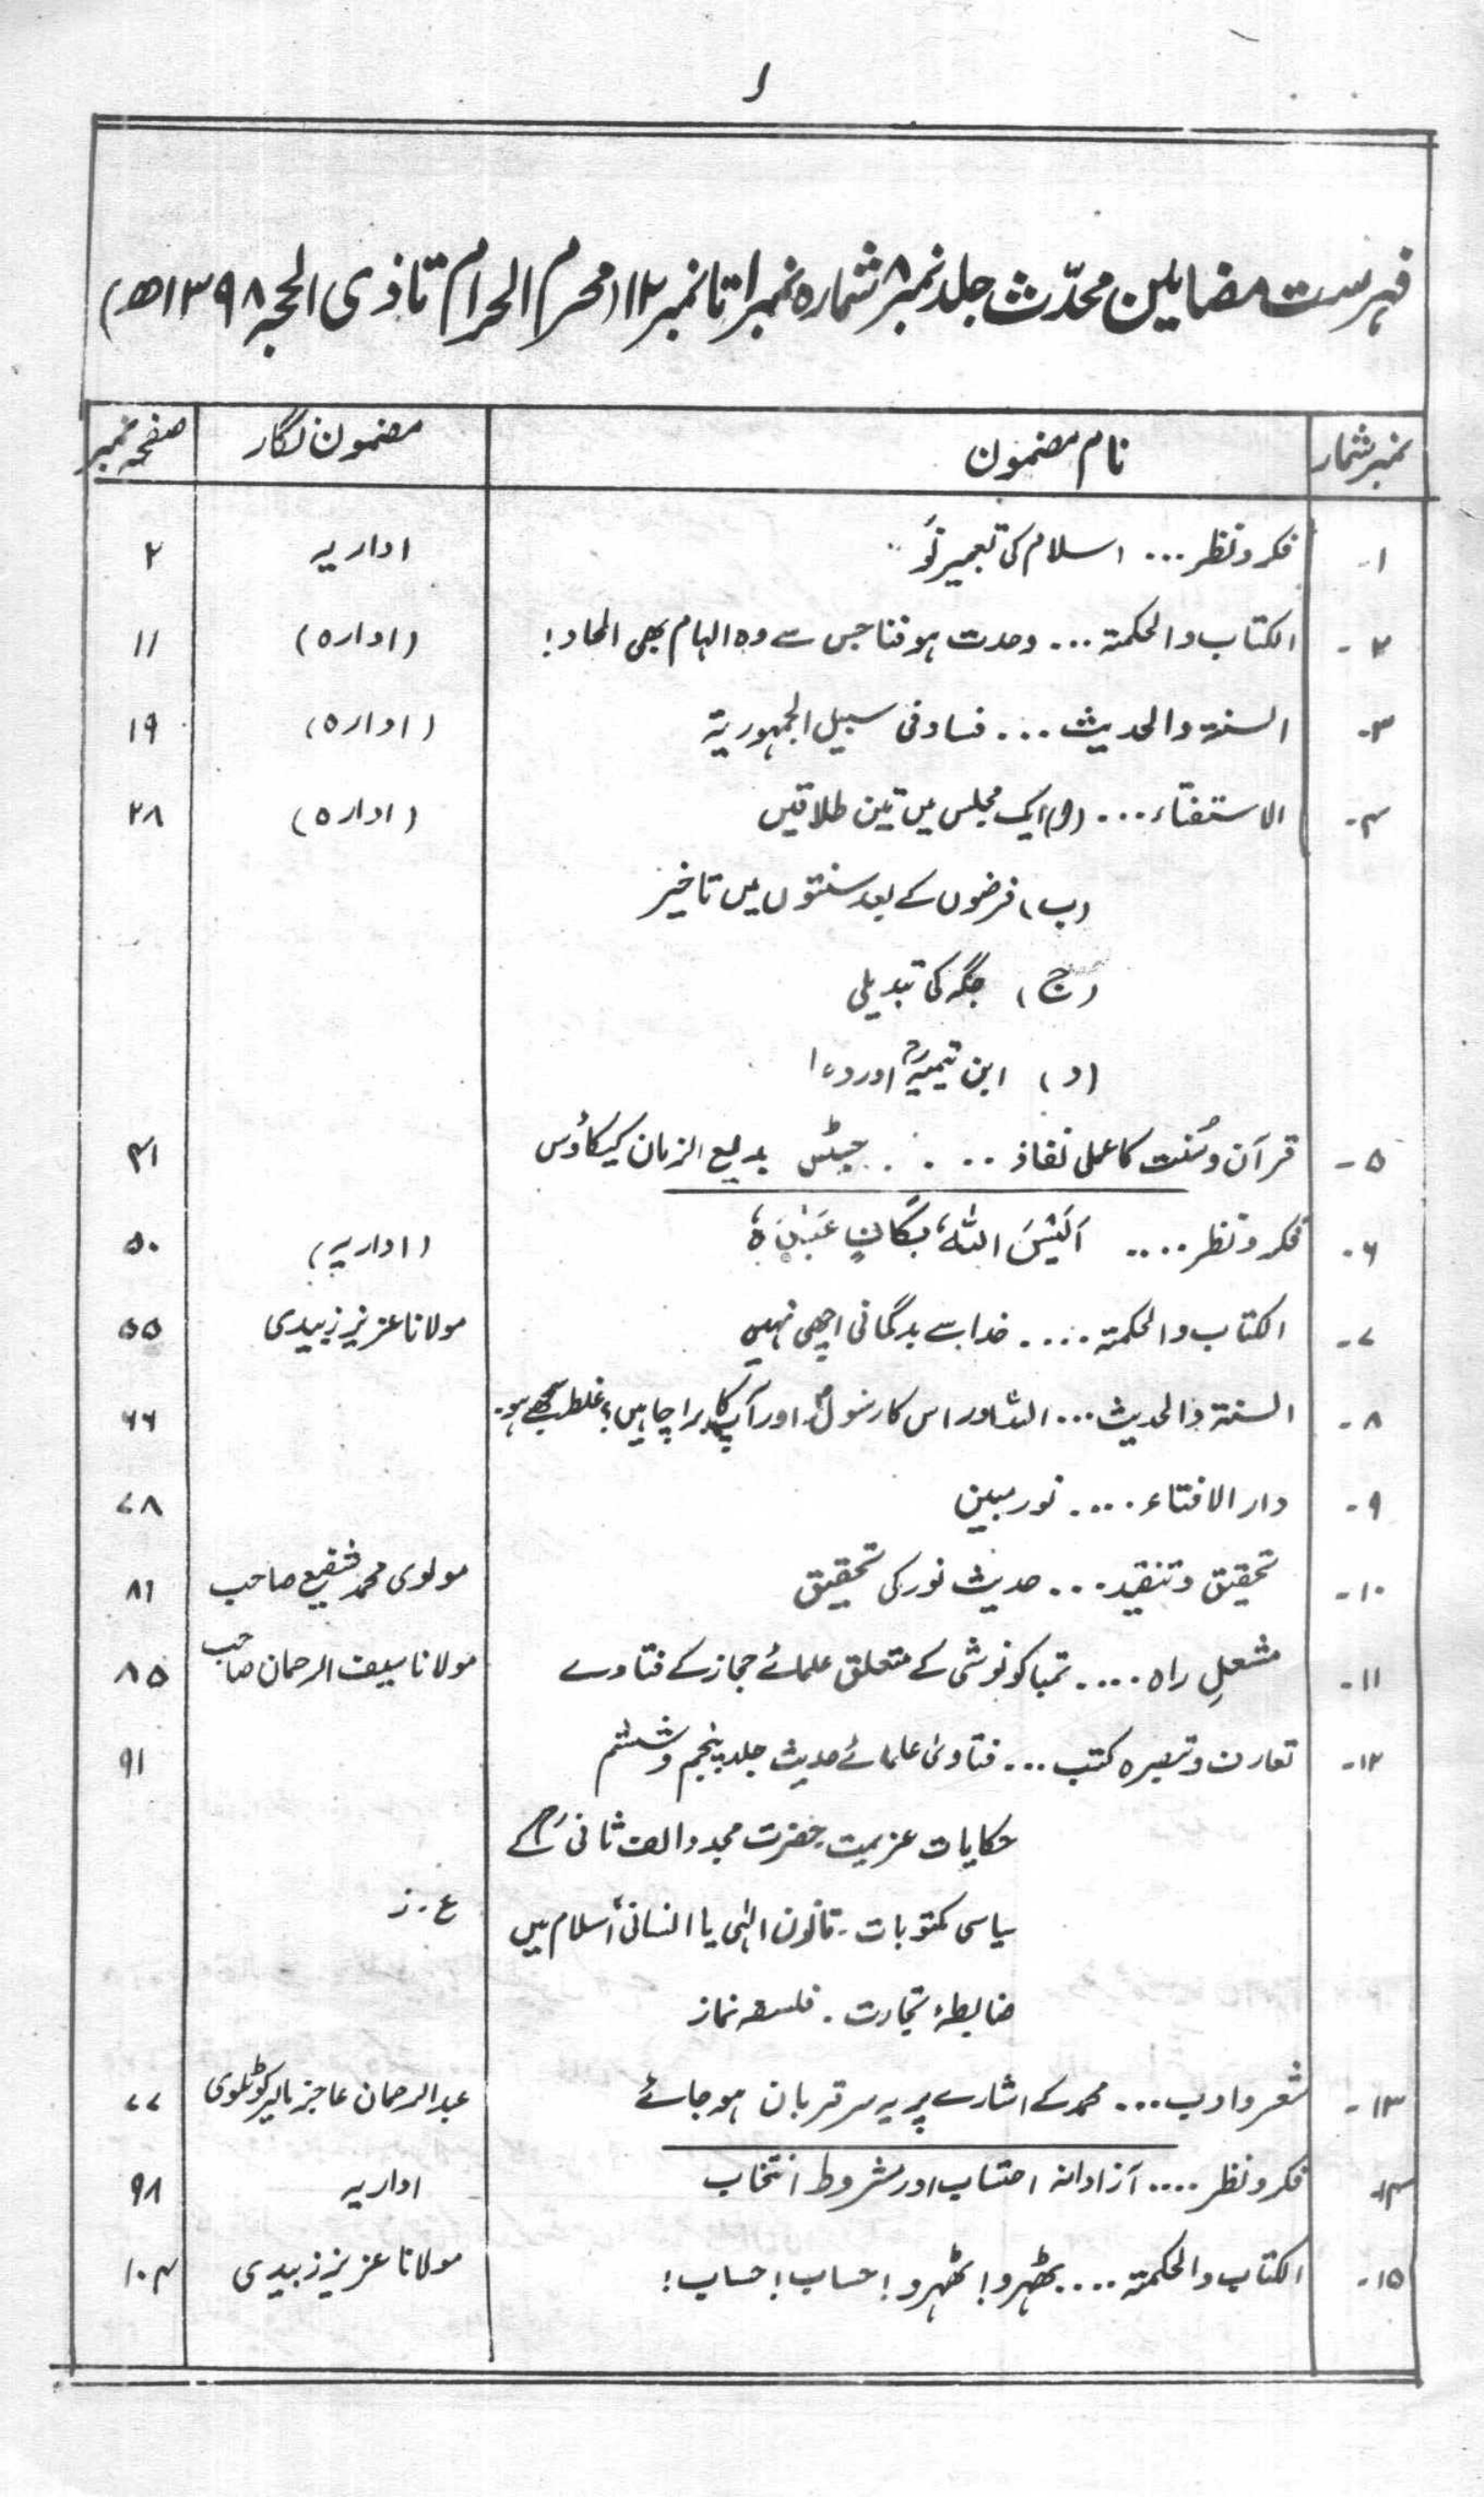 ۱
فہرست مضامین محدّث جلد نمبر ۸ شمارہ نمبر ۱ تا نمبر ۱۲ (محرم الحرام تا ذی الحجہ ۱۳۹۸ھ)
نمبر شمار نام مضمون مضمون نگار صفحہ نمبر
۱- فکر و نظر ... اسلام کی تعمیر نَو اداریہ ۲
۲- الکتاب والحکمۃ ... وحدت ہو فنا جس سے وہ الہام بھی الحاد! (ادارہ) ۱۱
۳- السنۃ والحدیث ... فساد فی سبیل الجمہوریۃ (ادارہ) ۱۹
۴- الاستفتاء ... (ا) ایک مجلس میں تین طلاقیں (ادارہ) ۲۸
(ب) فرضوں کے بعد سنتوں میں تاخیر
(ج) جگہ کی تبدیلی
(د) ابن تیمیہؒ اور دعا
۵- قرآن و سُنت کا عملی نفاذ .... جسٹس بدیع الزمان کیکاؤس ۴۱
۶- فکر و نظر .... اَلَیْسَ اللہُ بِکَافٍ عَبْدَہٗ (اداریہ) ۵۰
۷- الکتاب والحکمۃ .... خدا سے بدگمانی اچھی نہیں مولانا عزیز زبیدی ۵۵
۸- السنۃ والحدیث ... اللہ اور اس کا رسولؐ اور آپ کا برا چاہیں؟ غلط سمجھے ہو۔ ۶۶
۹- دار الافتاء .... نور مبین ۷۸
۱۰- تحقیق و تنقید ... حدیث نور کی تحقیق مولوی محمد شفیع صاحب ۸۱
۱۱- مشعلِ راہ .... تمباکو نوشی کے متعلق علمائے حجاز کے فتاوے مولانا سیف الرحمان صاحب ۸۵
۱۲- تعارف و تبصرہ کتب ... فتاویٰ علمائے حدیث جلد پنجم و ششم ۹۱
حکایات عزیمت۔ حضرت مجدد الف ثانیؒ کے
سیاسی مکتوبات۔ قانون الہٰی یا انسانی؟ اسلام میں ع۔ز
ضابطۂ تجارت۔ فلسفہ نماز
۱۳- شعر و ادب ... محمدؐ کے اشارے پر یہ سر قربان ہو جائے عبدالرحمان عاجز مالیرکوٹلوی ۷۷
۱۴- فکر و نظر .... آزادانہ احتساب اور مشروط انتخاب اداریہ ۹۸
۱۵- الکتاب والحکمۃ .... ٹھہرو! ٹھہرو! حساب! حساب! مولانا عزیز زبیدی ۱۰۴